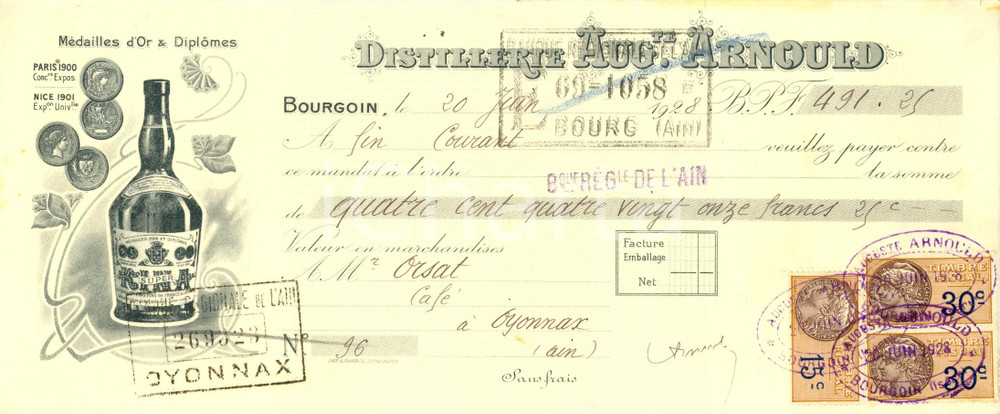 Médailles d'Or & Diplômes
PARIS 1900
Concrs Expos.
NICE 1901
Expon Univlle
DISTILLERIE AUGTE ARNOULD
69=1058
BOURG (Ain)
BOURGOIN, le 20 Juin 1928 B.P.F. 491.25
A fin Courant veuillez payer contre
ce mandat à l'ordre la somme
BQUE RÉGLE DE L'AIN
de quatre cent quatre vingt onze francs 25c
Valeur en marchandises
Facture
Emballage
Net
A Mr Orsat
Café
à Oyonnax
(ain)
SUPER
RÉGIONALE DE L'AIN
269323
OYONNAX
No 96
Sans frais
Arnould
AUGUSTE ARNOULD
JUIN 1928
TIMBRE
30c
AUGUSTE ARNOULD
20 JUIN 1928
BOURGOIN (Isère)
30c
15c